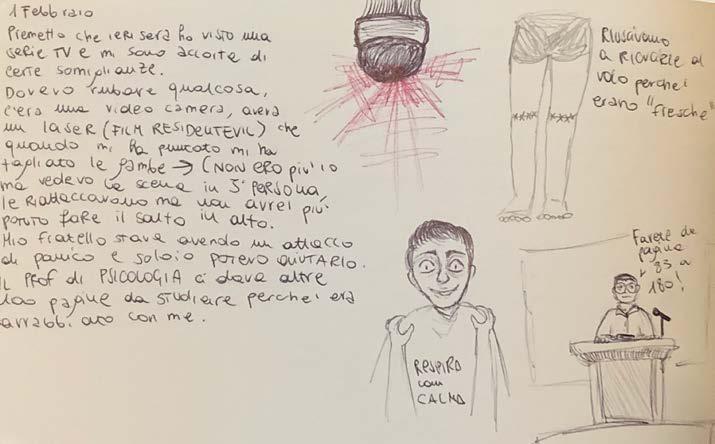 1 Febbraio
Premetto che ieri sera ho visto una
serie TV e mi sono accorta di
certe somiglianze.
Dovevo rubare qualcosa,
c'era una video camera, aveva
un laser (FILM RESIDENTEVIL) che
quando mi ha puntato mi ha
tagliato le gambe → (NON ERO più io
ma vedevo la scena in 3ª PERSONA
le riattaccavano ma non avrei più
potuto fare il salto in alto.
Mio fratello stava avendo un attacco
di panico e solo io potevo aiutarlo.
IL PROF di PSICOLOGIA ci dava altre
100 pagine da studiare perchei era
arrabbiato con me.
Riuscivano
a ricucirle al
volo perchei
erano "fresche"
RESPIRA
con
CALMA
Farete da
pagina
83 a
180!